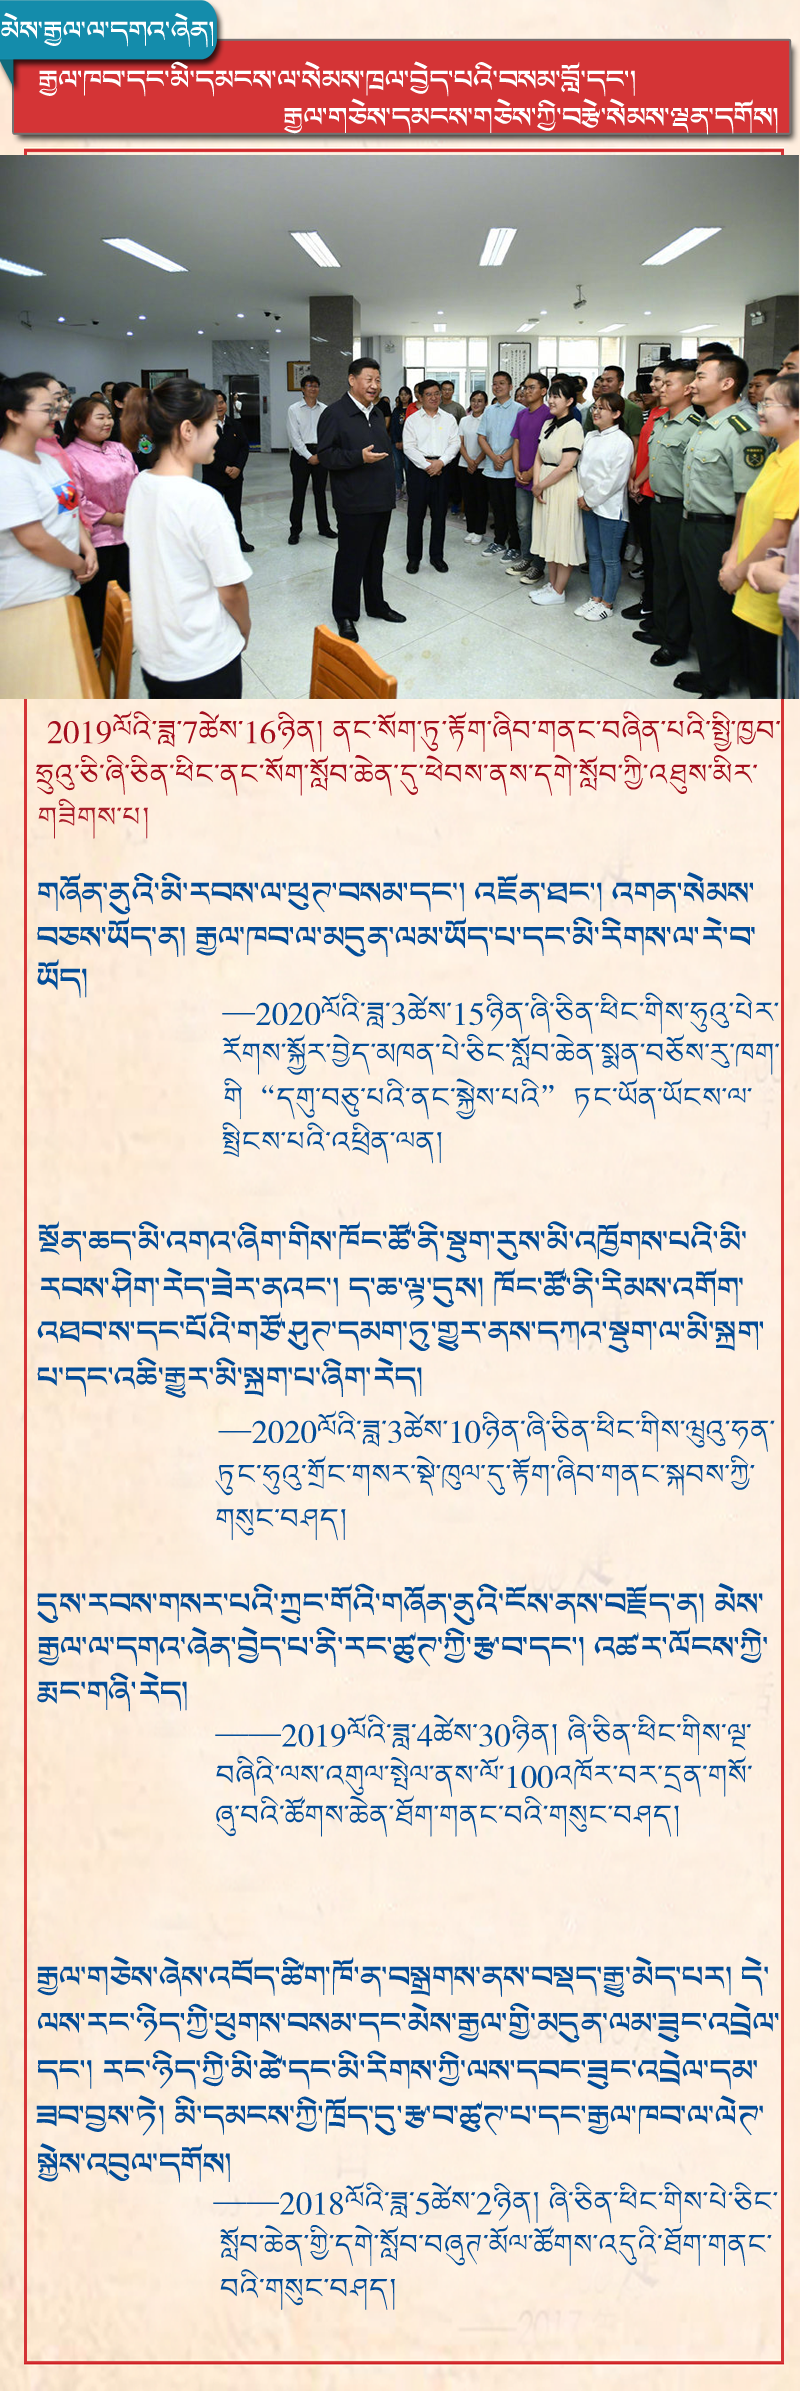 མེས་རྒྱལ་ལ་དགའ་ཞེན།
རྒྱལ་ཁབ་དང་མི་དམངས་ལ་སེམས་ཁྲལ་བྱེད་པའི་བསམ་བློ་དང་།
རྒྱལ་གཅེས་དམངས་གཅེས་ཀྱི་བརྩེ་སེམས་ལྡན་དགོས།
2019ལོའི་ཟླ་7ཚེས་16ཉིན། ནང་སོག་ཏུ་རྟོག་ཞིབ་གནང་བཞིན་པའི་སྤྱི་ཁྱབ་
ཧྲུའུ་ཅི་ཞི་ཅིན་ཕིང་ནང་སོག་སློབ་ཆེན་དུ་ཕེབས་ནས་དགེ་སློབ་ཀྱི་འཐུས་མིར་
གཟིགས་པ།
གཞོན་ནུའི་མི་རབས་ལ་ཕུཊ་བསམ་དང་། འཇོན་ཐང་། འགན་སེམས་
བཅས་ཡོད་ན། རྒྱལ་ཁབ་ལ་མདུན་ལམ་ཡོད་པ་དང་མི་རིགས་ལ་རེ་བ་
ཡོད།
—2020ལོའི་ཟླ་3ཚེས་15ཉིན་ཞི་ཅིན་ཕིང་གིས་ཧུའུ་པེར་
རོགས་སྐྱོར་བྱེད་མཁན་པེ་ཅིང་སློབ་ཆེན་སྨན་བཅོས་རུ་ཁག་
གི “དགུ་བཅུ་པའི་ནང་སྐྱེས་པའི” ཏང་ཡོན་ཡོངས་ལ་
སྤྲིངས་པའི་འཕྲིན་ལན།
སྔོན་ཆད་མི་འགའ་ཞིག་གིས་ཁོང་ཚོ་ནི་སྡུག་རུས་མི་འཁྱོགས་པའི་མི་
རབས་ཤིག་རེད་ཟེར་ནའང་། ད་ཆ་ལྟ་དུས། ཁོང་ཚོ་ནི་རིམས་འགོག་
འཐབ་ས་དང་པོའི་གཙོ་ཤུཊ་དམག་ཏུ་གྱུར་ནས་དཀའ་སྡུག་ལ་མི་སྐྲག་
པ་དང་འཆི་རྒྱུར་མི་སྐྲག་པ་ཞིག་རེད།
—2020ལོའི་ཟླ་3ཚེས་10ཉིན་ཞི་ཅིན་ཕིང་གིས་ཝུའུ་ཧན་
ཏུང་ཧུའུ་གྲོང་གསར་སྡེ་ཁུལ་དུ་རྟོག་ཞིབ་གནང་སྐབས་ཀྱི་
གསུང་བཤད།
དུས་རབས་གསར་པའི་ཀྲུང་གོའི་གཞོན་ནུའི་ངོས་ནས་བརྗོད་ན། མེས་
རྒྱལ་ལ་དགའ་ཞེན་བྱེད་པ་ནི་རང་ཚུཊ་ཀྱི་རྩ་བ་དང་། འཚར་ལོངས་ཀྱི་
རྨང་གཞི་རེད།
——2019ལོའི་ཟླ་4ཚེས་30ཉིན། ཞི་ཅིན་ཕིང་གིས་ལྔ་
བཞིའི་ལས་འགུལ་སྤེལ་ནས་ལོ་100འཁོར་བར་དྲན་གསོ་
ཞུ་བའི་ཚོགས་ཆེན་ཐོག་གནང་བའི་གསུང་བཤད།
རྒྱལ་གཅེས་ཞེས་འབོད་ཚིག་ཁོ་ན་བསྒྲགས་ནས་བསྡད་རྒྱུ་མེད་པར། དེ་
ལས་རང་ཉིད་ཀྱི་ཕུགས་བསམ་དང་མེས་རྒྱལ་གྱི་མདུན་ལམ་ཟུང་འབྲེལ་
དང་། རང་ཉིད་ཀྱི་མི་ཚེ་དང་མི་རིགས་ཀྱི་ལས་དབང་ཟུང་འབྲེལ་དམ་
ཟབ་བྱས་ཏེ། མི་དམངས་ཀྱི་ཁྲོད་དུ་རྩ་བ་ཚུཊ་པ་དང་རྒྱལ་ཁབ་ལ་ལེཊ་
སྐྱེས་འབུལ་དགོས།
——2018ལོའི་ཟླ་5ཚེས་2ཉིན། ཞི་ཅིན་ཕིང་གིས་པེ་ཅིང་
སློབ་ཆེན་གྱི་དགེ་སློབ་བཞུཊ་མོལ་ཚོགས་འདུའི་ཐོག་གནང་
བའི་གསུང་བཤད།